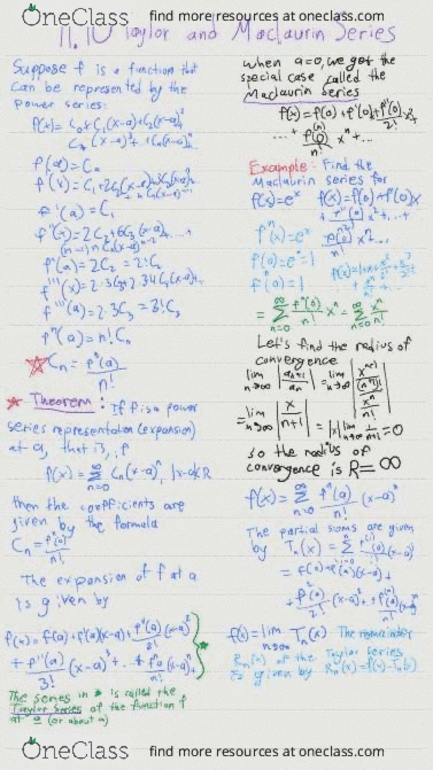 OneClass find more resources at oneclass.com
11.10 Taylor and Maclaurin Series
Suppose f is a function that
can be represented by the
power series:
f(x) = C₀+C₁(x-a)+C₂(x-a)²+
C₃(x-a)³+...+Cₙ(x-a)ⁿ
f(a)=C₀
f'(a)=C₁
f''(a)=2C₂=2!C₂
f'''(a)=2·3C₃=3!C₃
fⁿ(a)=n!Cₙ
Cₙ = fⁿ(a)/n!
* Theorem: If f is a power
series representation (expansion)
at a, that is, if
f(x) = ∑ₙ₌₀^∞ Cₙ(x-a)ⁿ, |x-a|<R
then the coefficients are
given by the formula
Cₙ = fⁿ(a)/n!
The expansion of f at a
is given by
f(x) = f(a)+f'(a)(x-a)+f''(a)/2!(x-a)²
+ f'''(a)/3!(x-a)³+...+fⁿ(a)/n!(x-a)ⁿ+
The series in * is called the
Taylor Series of the function f
at a (or about a)
When a=0, we get the
special case called the
Maclaurin series
f(x)=f(0)+f'(0)+f''(0)x²/2!
...+f⁽ⁿ⁾(0)/n! xⁿ+...
Example: Find the
Maclaurin series for
f(x)=eˣ f(x)=f(0)+f'(0)x
fⁿ(x)=eˣ
f(0)=e⁰=1
fⁿ(0)=1
= ∑ₙ₌₀^∞ fⁿ(0)/n! xⁿ = ∑ₙ₌₀^∞ xⁿ/n!
Let's find the radius of
convergence
lim n→∞ |aₙ₊₁/aₙ| = lim n→∞ |xⁿ⁺¹/(n+1)! / xⁿ/n!|
= lim n→∞ |x/n+1| = |x| lim n→∞ 1/n+1 = 0
so the radius of
convergence is R=∞
f(x) = ∑ₙ₌₀^∞ fⁿ(a)/n! (x-a)ⁿ
The partial sums are given
by Tₙ(x) =
f(x) = lim n→∞ Tₙ(x) The remainder
Rₙ(x) of the Taylor series
is given by Rₙ(x)=f(x)-Tₙ(x)
OneClass find more resources at oneclass.com